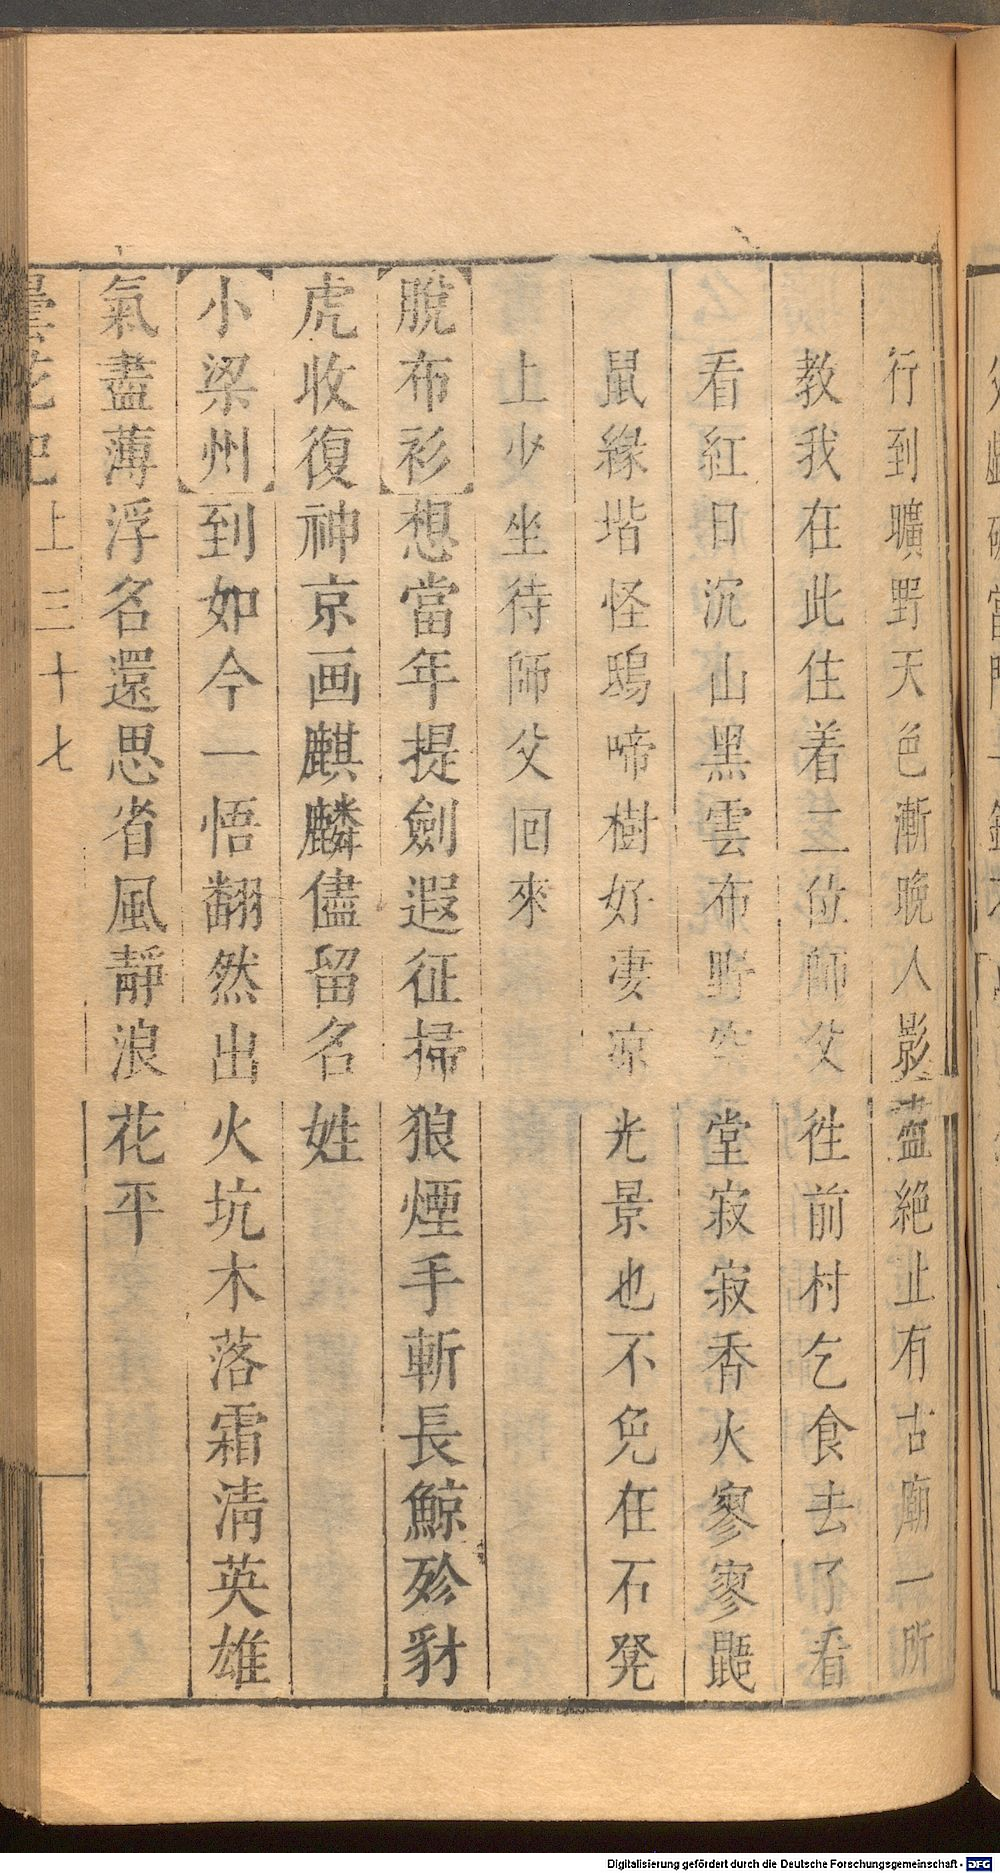 行到曠野天色漸晚人影盡絕止有古廟一所
教我在此住着二位師父徃前村乞食去了看
看紅日沉山黑雲布野空堂寂寂香火寥寥鼯
鼠緣堦怪鴟啼樹好凄凉光景也不免在石凳
上少坐待師父回來
脫布衫想當年提劍遐征掃狼煙手斬長鯨殄豺
虎收復神京画麒麟儘留名姓
小梁州到如今一悟翻然出火坑木落霜清英雄
氣盡薄浮名還思省風靜浪花平
曇花記上三十七
Digitalisierung gefördert durch die Deutsche Forschungsgemeinschaft - DFG